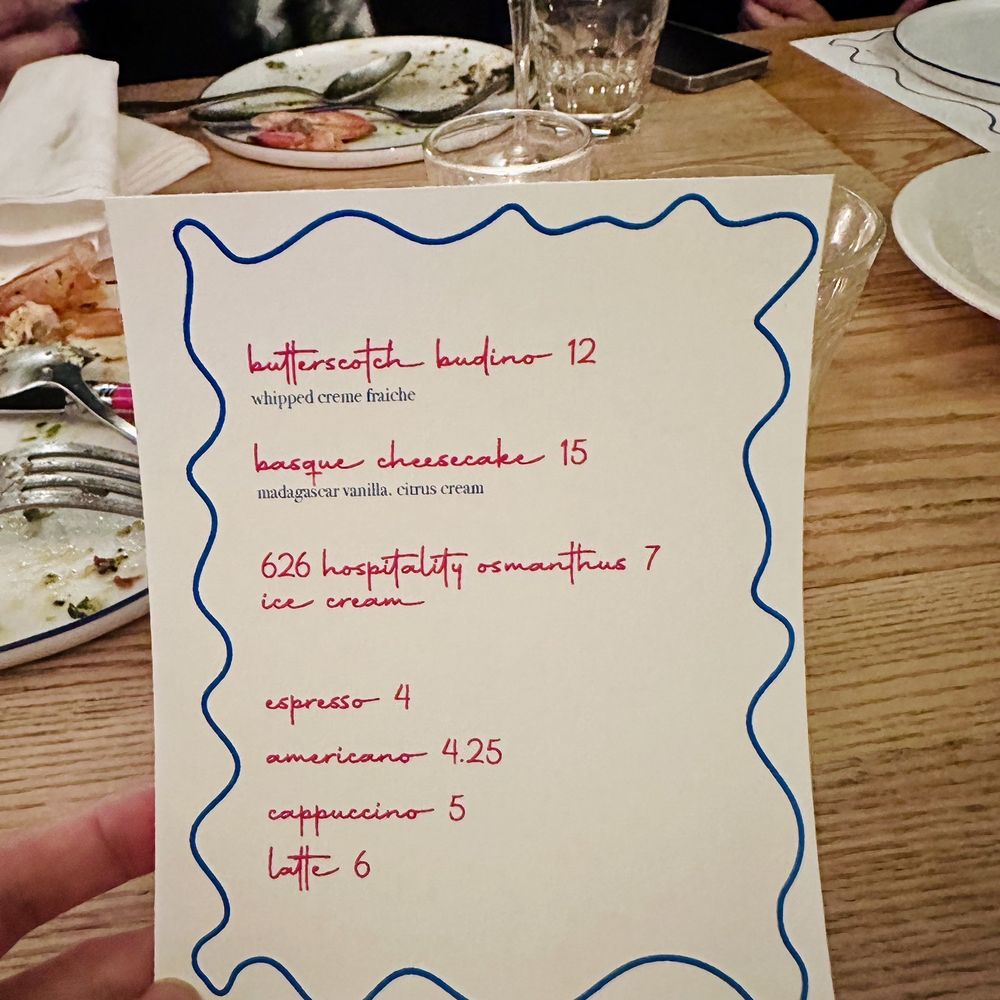 butterscotch budino 12
whipped creme fraiche
basque cheesecake 15
madagascar vanilla, citrus cream
626 hospitality osmanthus 7
ice cream
espresso 4
americano 4.25
cappuccino 5
latte 6